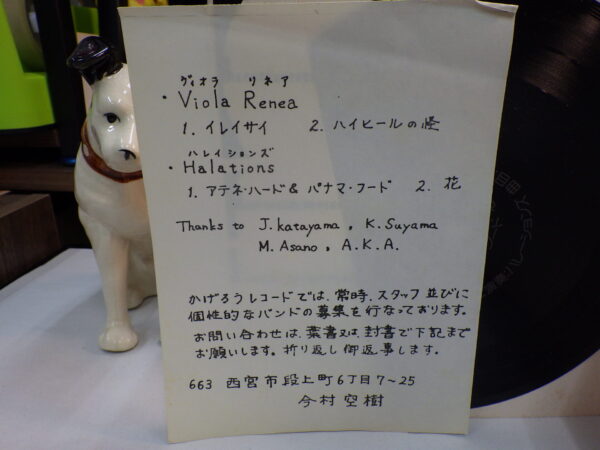 ヴィオラ リネア
・Viola Renea
1. イレイサイ 2. ハイヒールの怪
ハレイションズ
・Halations
1. アテネ・ハード & パナマ・フード 2. 花
Thanks to J.katayama, K.Suyama
M.Asano, A.K.A.
かげろうレコードでは、常時、スタッフ並びに
個性的なバンドの募集を行なっております。
お問い合わせは、葉書又は、封書で下記まで
お願いします。折り返し御返事します。
663 西宮市段上町6丁目7~25
今村空樹